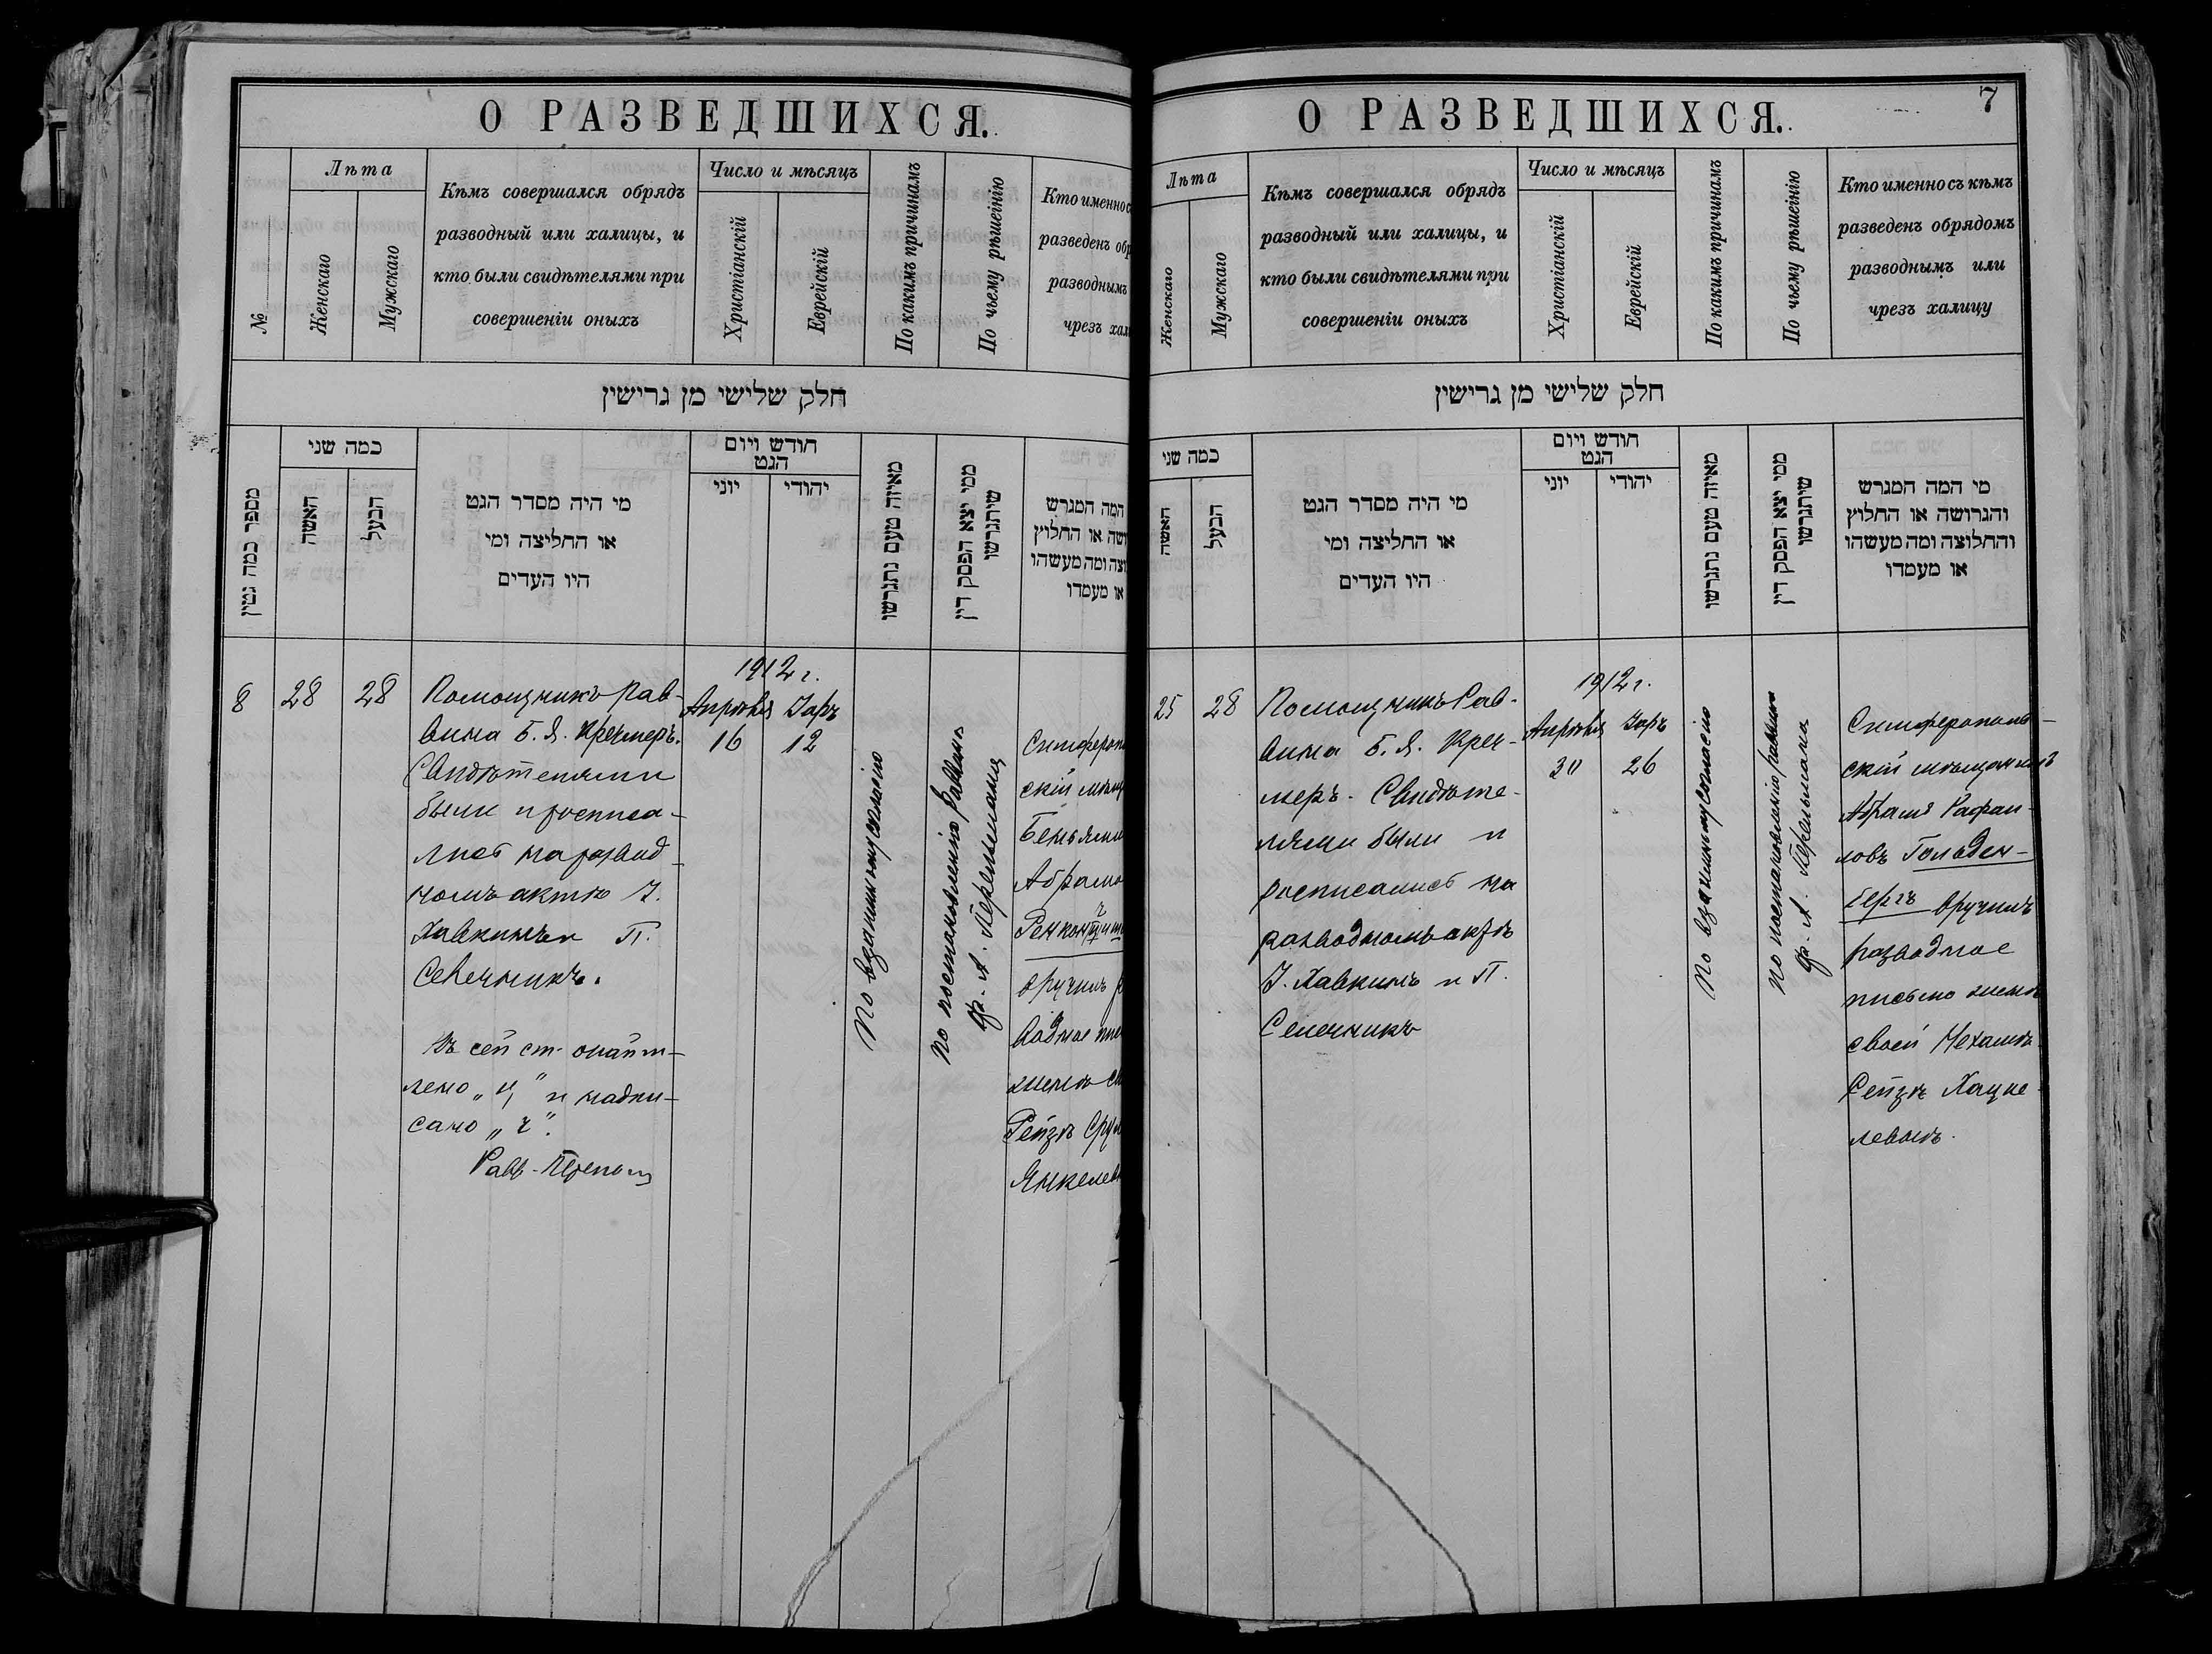 О РАЗВЕДШИХСЯ.
№
Лѣта
Женскаго
Мужскаго
Кѣмъ совершался обрядъ
разводный или халицы, и
кто были свидѣтелями при
совершеніи оныхъ
Число и мѣсяцъ
Христіанскій
Еврейскій
По какимъ причинамъ
По чьему рѣшенію
Кто именно с
разведенъ обр
разводнымъ
чрезъ хал
חלק שלישי מן גרישין
מספר כמה גטין
כמה שני
האשה
הבעל
מי היה מסדר הגט
או החליצה ומי
היו העדים
חודש ויום
הגט
יוני
יהודי
מאיזה טעם נתגרשו
ממי יצא הפסק דין
שיתגרשו
המה המגרש
ושה או החלוץ
וצה ומה מעשהו
או מעמדו
8
28
28
Помощникъ Рав-
вина Б. Я. Кречмеръ.
Свидѣтелями
были и росписа-
лись на развод-
номъ актѣ І.
Хавкинъ и П.
Селечникъ.
Въ сей ст.
лено „ц“ и надпи-
сано „ч“.
Равв.
1912 г.
Апрѣля
Іаръ
16
12
По взаимному согласію
По постановленію раввина
Ф. А. Перельмана
Симфероп
скій мѣщ
Беньямин
Абрамо
вручилъ р
водное пис
женѣ св
Рейзѣ Срул
Янкелев
О РАЗВЕДШИХСЯ.
7
Лѣта
Женскаго
Мужскаго
Кѣмъ совершался обрядъ
разводный или халицы, и
кто были свидѣтелями при
совершеніи оныхъ
Число и мѣсяцъ
Христіанскій
Еврейскій
По какимъ причинамъ
По чьему рѣшенію
Кто именно съ кѣмъ
разведенъ обрядомъ
разводнымъ или
чрезъ халицу
חלק שלישי מן גרישין
כמה שני
האשה
הבעל
מי היה מסדר הגט
או החליצה ומי
היו העדים
חודש ויום
הגט
יוני
יהודי
מאיזה טעם נתגרשו
ממי יצא הפסק דין
שיתגרשו
מי המה המגרש
והגרושה או החלוץ
והחלוצה ומה מעשהו
או מעמדו
25
28
Помощникъ Рав-
вина Б. Я. Креч-
меръ. Свидѣте-
лями были и
росписались на
разводномъ актѣ
І. Хавкинъ и П.
Селечникъ
1912 г.
Апрѣля
Іаръ
30
26
По взаимному согласію
По постановленію раввина
Ф. А. Перельмана
Симферополь-
скій мѣщанинъ
Абрамъ Рафаи-
ловъ Гольден-
бергъ вручилъ
разводное
письмо женѣ
своей Нехамѣ-
Рейзѣ Хацке-
левой.